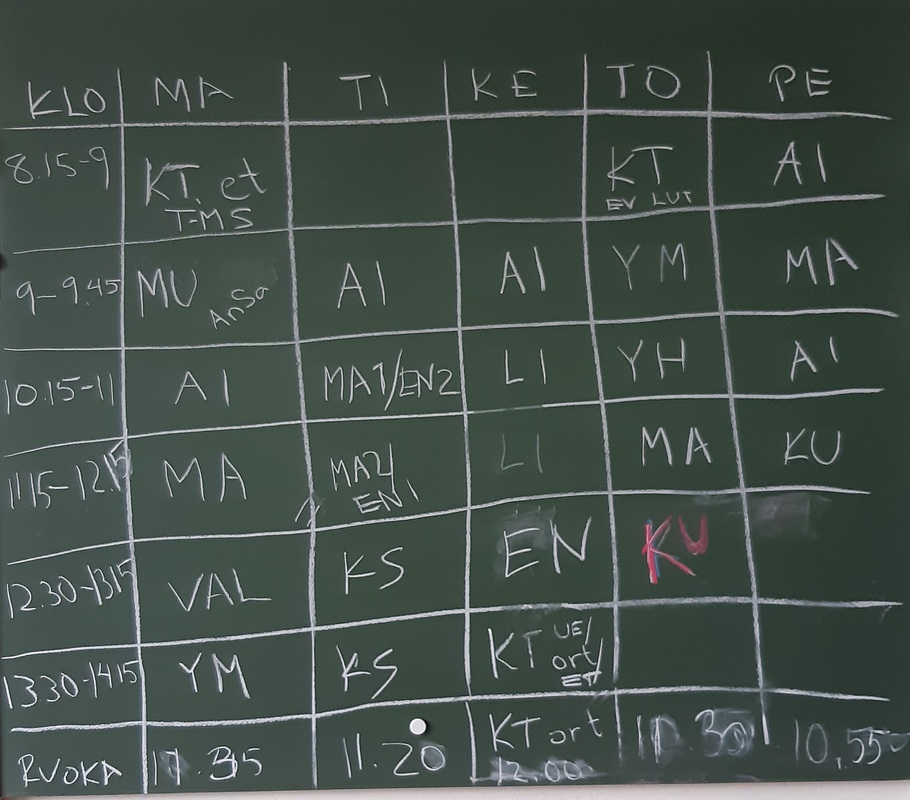 KLO MA TI KE TO PE
8.15-9 KT. et KT AI
T-MS EV LUT
9-9.45 MU AnSa AI AI YM MA
10.15-11 AI MA1/EN2 LI YH AI
11.15-12.15 MA MA2/ LI MA KU
EN1
12.30-1315 VAL KS EN KU
13.30-1415 YM KS KT UE/
ort/
ET
RUOKA 11.20 KT ort 11.30 10.55
12.00